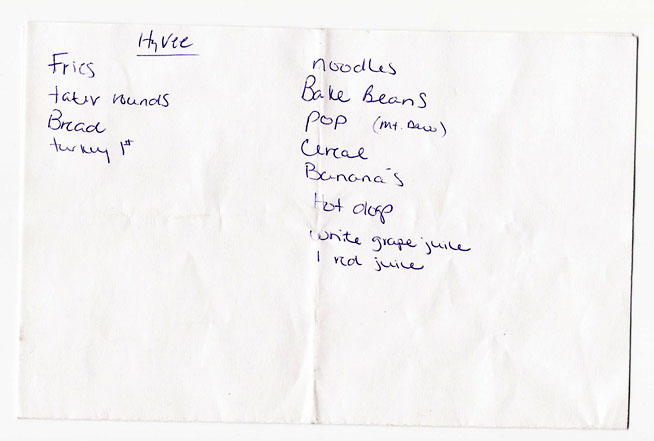 Hyvee
Fries
tater rounds
Bread
turkey 1#
noodles
Bake Beans
pop (Mt. Dew)
Cereal
Banana's
Hot dogs
white grape juice
1 red juice